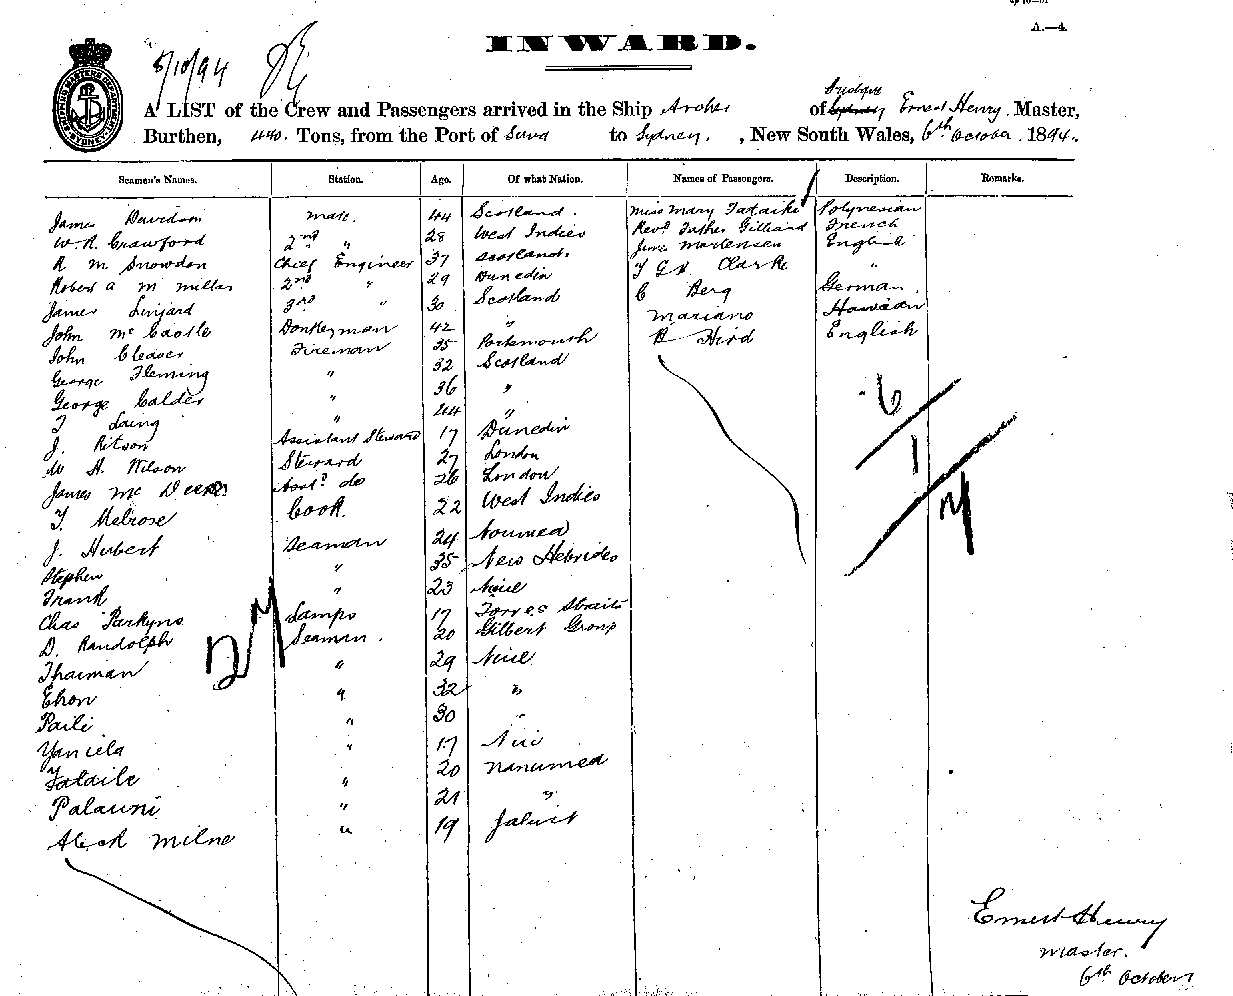 A.—4.
INWARD.
8/10/94
A LIST of the Crew and Passengers arrived in the Ship Archer of Sydney Ernest Henry, Master,
Burthen, 440 Tons, from the Port of Suva to Sydney, New South Wales, 6th October 1894.
Seamen's Names. Station. Age. Of what Nation. Names of Passengers. Description. Remarks.
James Davidson Mate. 44 Scotland. Miss Mary Tataiki Polynesian
W. R. Crawford 2nd " 28 West Indies Revd. Father Gilliand French
R M Snowdon Chief Engineer 37 Scotland. James Mortensen English
Robert A M Millar 2nd " 29 Dunedin T G H Clarke "
James Linjard 3rd " 30 Scotland C Berg German
John McCastle Donkeyman 42 " Mariano Hawaiian
John Cleaver Fireman 35 Portsmouth R Hird English
George Fleming " 32 Scotland
George Calder " 36 "
T Laing " 44 "
J. Ritson Assistant Steward 17 Dunedin
W H. Wilson Steward 27 London
James Mc Asst. do 26 London
T. Melrose Cook. 22 West Indies
J. Hubert Seaman 24 Noumea
Stephen " 35 New Hebrides
Frank " 23 Niue
Chas Parkyns Lamps 17 Torres Straits
D. Randolph Seaman. 20 Gilbert Group
Thaiman " 29 Niue
Ehon " 32 "
Paili " 30 "
Yaniela " 17 Niue
Tataile " 20 Nanumea
Palauni " 21 "
Aleck Milne " 19 Jaluit
6
1
7
27
Ernest Henry
Master.
6th October